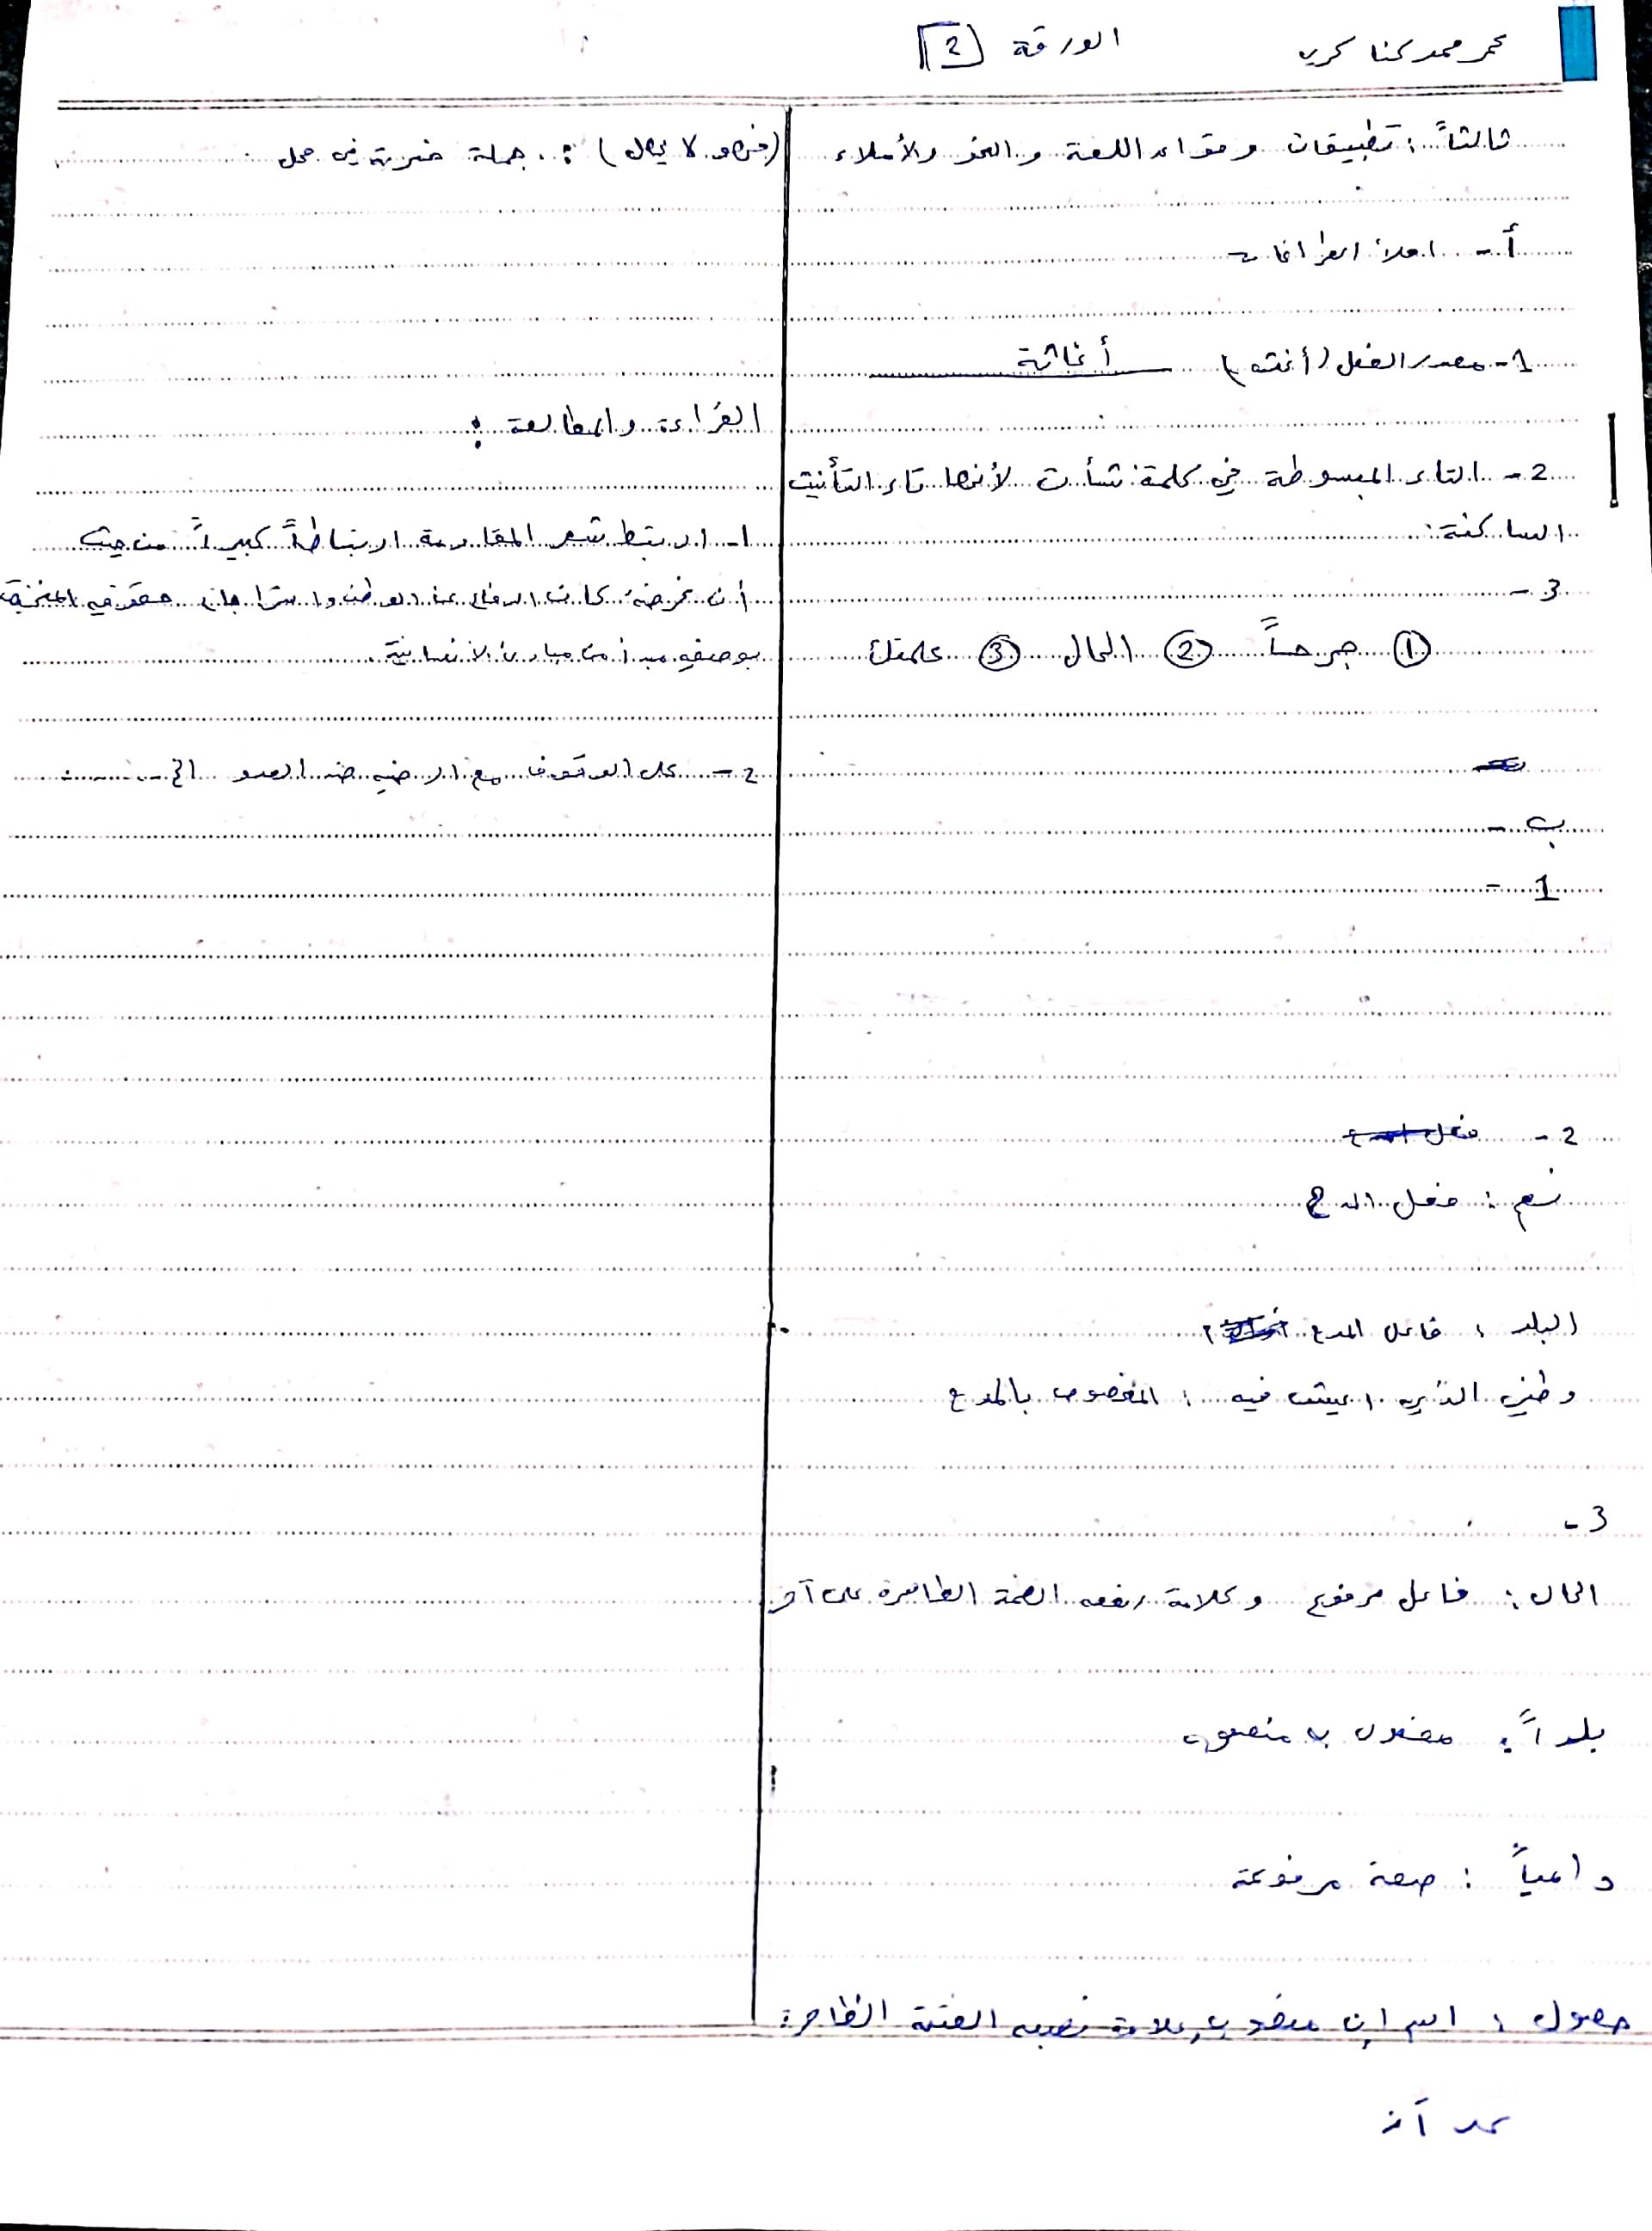 الورقة 2
ثالثاً : تطبيقات وقواعد اللغة والنحو والأملاء
أ - املأ الفراغات
1 - مصدر الفعل (أغثه) أغاثة
2 - التاء المبسوطة في كلمة نشأت لأنها تاء التأنيث
الساكنة
3 -
① جرحاً ② الحال ③ علمتك
ب -
1 -
2 -
نعم : فعل المدح
البلد : فاعل المدح
وطني الذي اعيش فيه : المخصوص بالمدح
3 -
الحال : فاعل مرفوع وعلامة رفعه الضمة الظاهرة على آخر
بلداً : مفعول به منصوب
دامياً : صفة مرفوعة
حصول : اسم إن منصوب وعلامة نصبه الفتحة الظاهرة
على آخر
( لا يصل ) : جملة خبرية في محل
القراءة والمطالعة :
1 - ارتبط شعر المقاومة ارتباطاً كبيراً من حيث
أن غرضه كان الدفاع عن الوطن واسترجاع حقوقه
بوصفه مبدأ من مبادئ الانسانية
2 - على الوقوف مع ارضيه ضد العدو الخ